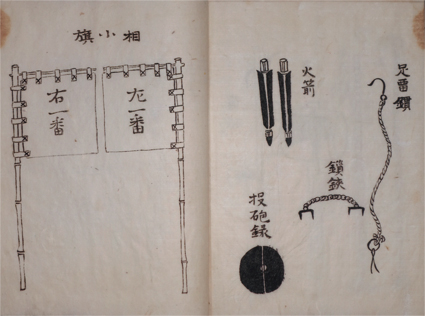 足雷鎖
火箭
鎖鋏
投砲録
相小旗
左一番
右一番